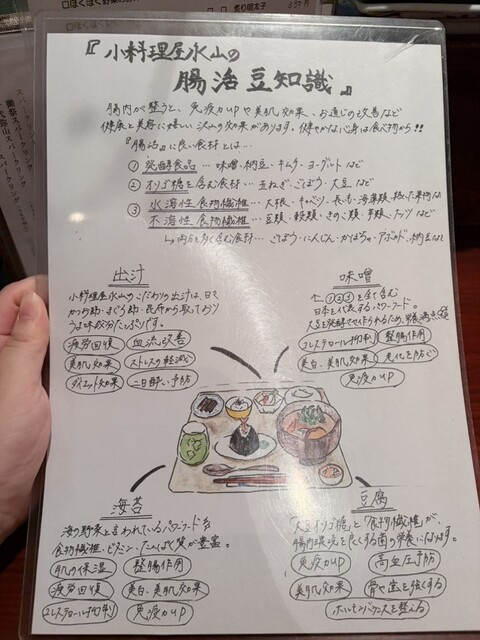 『小料理屋水山の
腸活豆知識』
腸内が整うと、免疫力UPや美肌効果、お通じの改善など
健康と美容に嬉しい沢山の効果があります。健やかな心身は食べ物から!!
『腸活』に良い食材とは…
① 発酵食品 … 味噌・納豆・キムチ・ヨーグルトなど
② オリゴ糖を含む食材 … 玉ねぎ・ごぼう・大豆など
③ 水溶性食物繊維 … 大根・キャベツ・長いも・海藻類・熟した果物など
不溶性食物繊維 … 豆類・穀類・きのこ類・芋類・ナッツなど
↳両方を多く含む食材 … ごぼう・にんじん・かぼちゃ・アボカド・納豆など
出汁
小料理屋水山のこだわりの出汁は、日々
かつお節・まぐろ節・昆布から取っており
うま味成分たっぷりです。
疲労回復 血流改善
美肌効果 ストレスの軽減
ダイエット効果 二日酔い予防
味噌
①②③を全て含む
日本を代表するパワーフード。
大豆を発酵させて作られるため、栄養満点
コレステロール抑制 整腸作用
美白、美肌効果 老化を防ぐ
免疫力UP
海苔
海の野菜と言われているパワーフード
食物繊維・ビタミン・たんぱく質が豊富。
肌の保湿 整腸作用
疲労回復 美白、美肌効果
コレステロール抑制 免疫力UP
豆腐
「大豆オリゴ糖」と「食物繊維」が、
腸内環境を良くする菌の栄養になります。
免疫力UP 高血圧予防
美肌効果 骨や歯を強くする
ホルモンバランスを整える